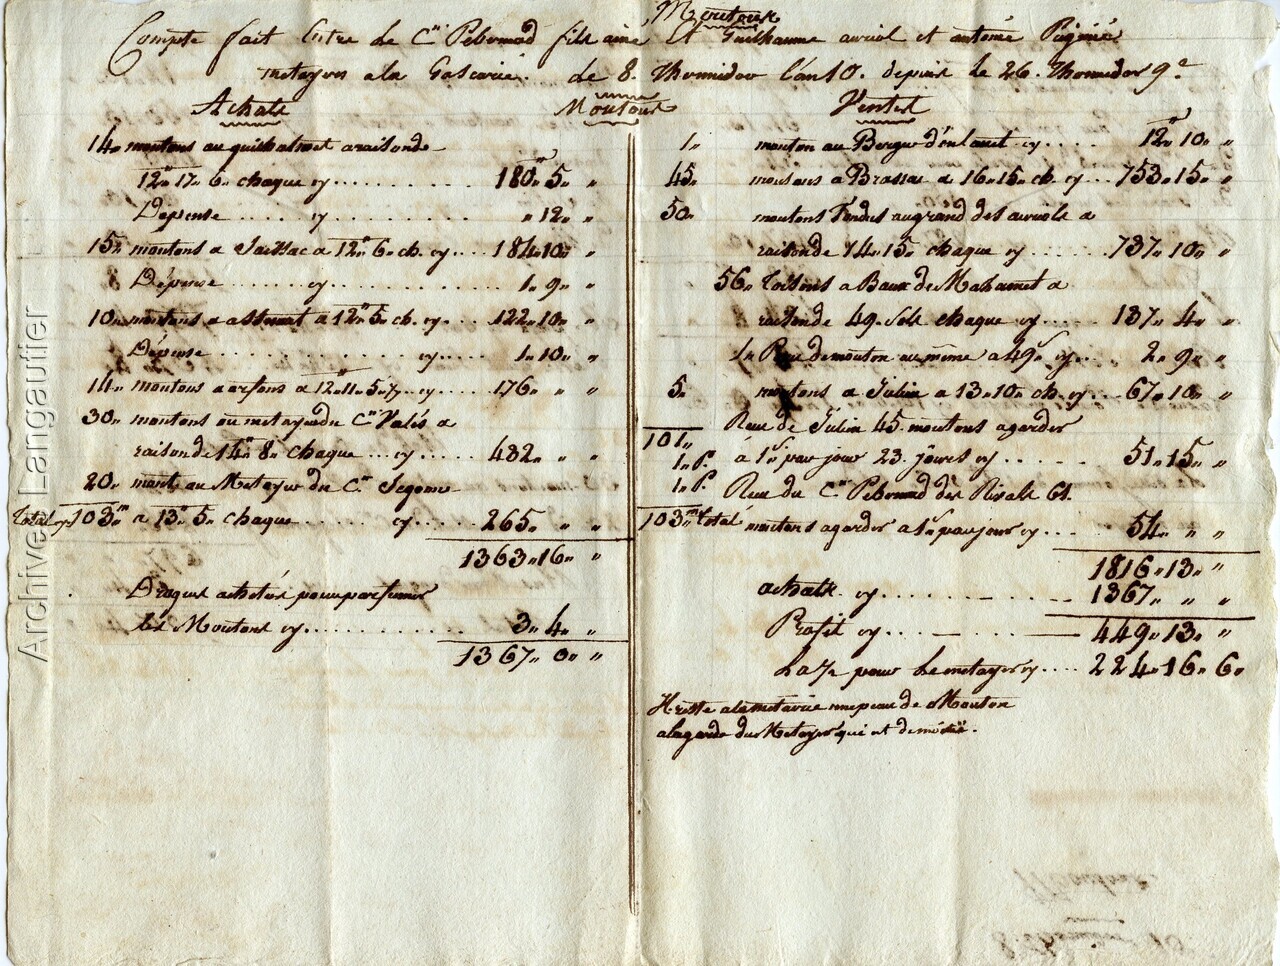 Moutons
Compte fait Entre Le Cen Pebernad fils ainé Et Guilhaume auriol et antoine
metayers ala Gascarié. de 8. Thermidor l'an 10. depuis le 26. Thermidor 9e
Achats
14„ moutons au araisonde
12„ 17„ 6„ chaque cy . . . . . . . . . . 180„ 5„ „
Dépense . . . . . . cy . . . . . . . . . . „ 12„ „
15„ moutons a Saissac a 12„ 6„ ch. cy . . . . 184„ 10„ „
Dépense . . . . . . cy . . . . . . . . . . 1„ 9„ „
10„ moutons a a 12„ 5„ ch. cy . . . . 122„ 10„ „
Dépense . . . . . . . . . . . cy . . . . 1„ 10„ „
14„ moutons a arfons a 12„ 11„ 5„ cy . . . . 176„ „ „
30„ moutons au metayer du Cen Valés a
raisonde 14„ 8„ chaque . . . . cy . . . . . 432„ „ „
20„ mout. au Metayer du Cen
Total cy 103m a 13„ 5„ chaque . . . . . . cy . . . . . 265„ „ „
1363„ 16„ „
Drogues achetés pour parfumer
les Moutons cy . . . . . . . . . . 3„ 4„ „
1367„ 0„ „
Moutons
Ventes
1„ mouton au Berger cy . . . . 12„ 10„ „
45„ moutons a Brassac a 16„ 15„ ch. cy . . . 753„ 15„ „
50„ moutons Tondus augrand des auriols a
raisonde 14„ 15„ chaque cy . . . . . . 737„ 10„ „
56„ Toisons a Baux de Mahamet a
raisonde 49„ sols chaque cy . . . . 137„ 4„ „
1„ Peau demouton au même a 49s cy . . . 2„ 9„ „
5„ moutons a Julia a 13„ 10„ ch. cy . . . 67„ 10„ „
101„ Reçu de Julia 45„ moutons agarder
1„ P. à 1s par jour 23„ joûrs cy . . . . . 51„ 15„ „
1„ P. Reçu du Cen Pebernad des Rivals 61„
103m total moutons agarder a 1s par jour cy . . . . 54„ „ „
1816„ 13„ „
achats cy . . . . . . . . . 1367„ „ „
Profit cy . . . . . . . . . 449„ 13„ „
La ½ pour Le metayer cy . . . . 224„ 16„ 6„
Il reste alametairie une peau de Mouton
alagarde du Metayer qui est demoitié.
Moutons
8. Thermidor 10.
Archive Langautier